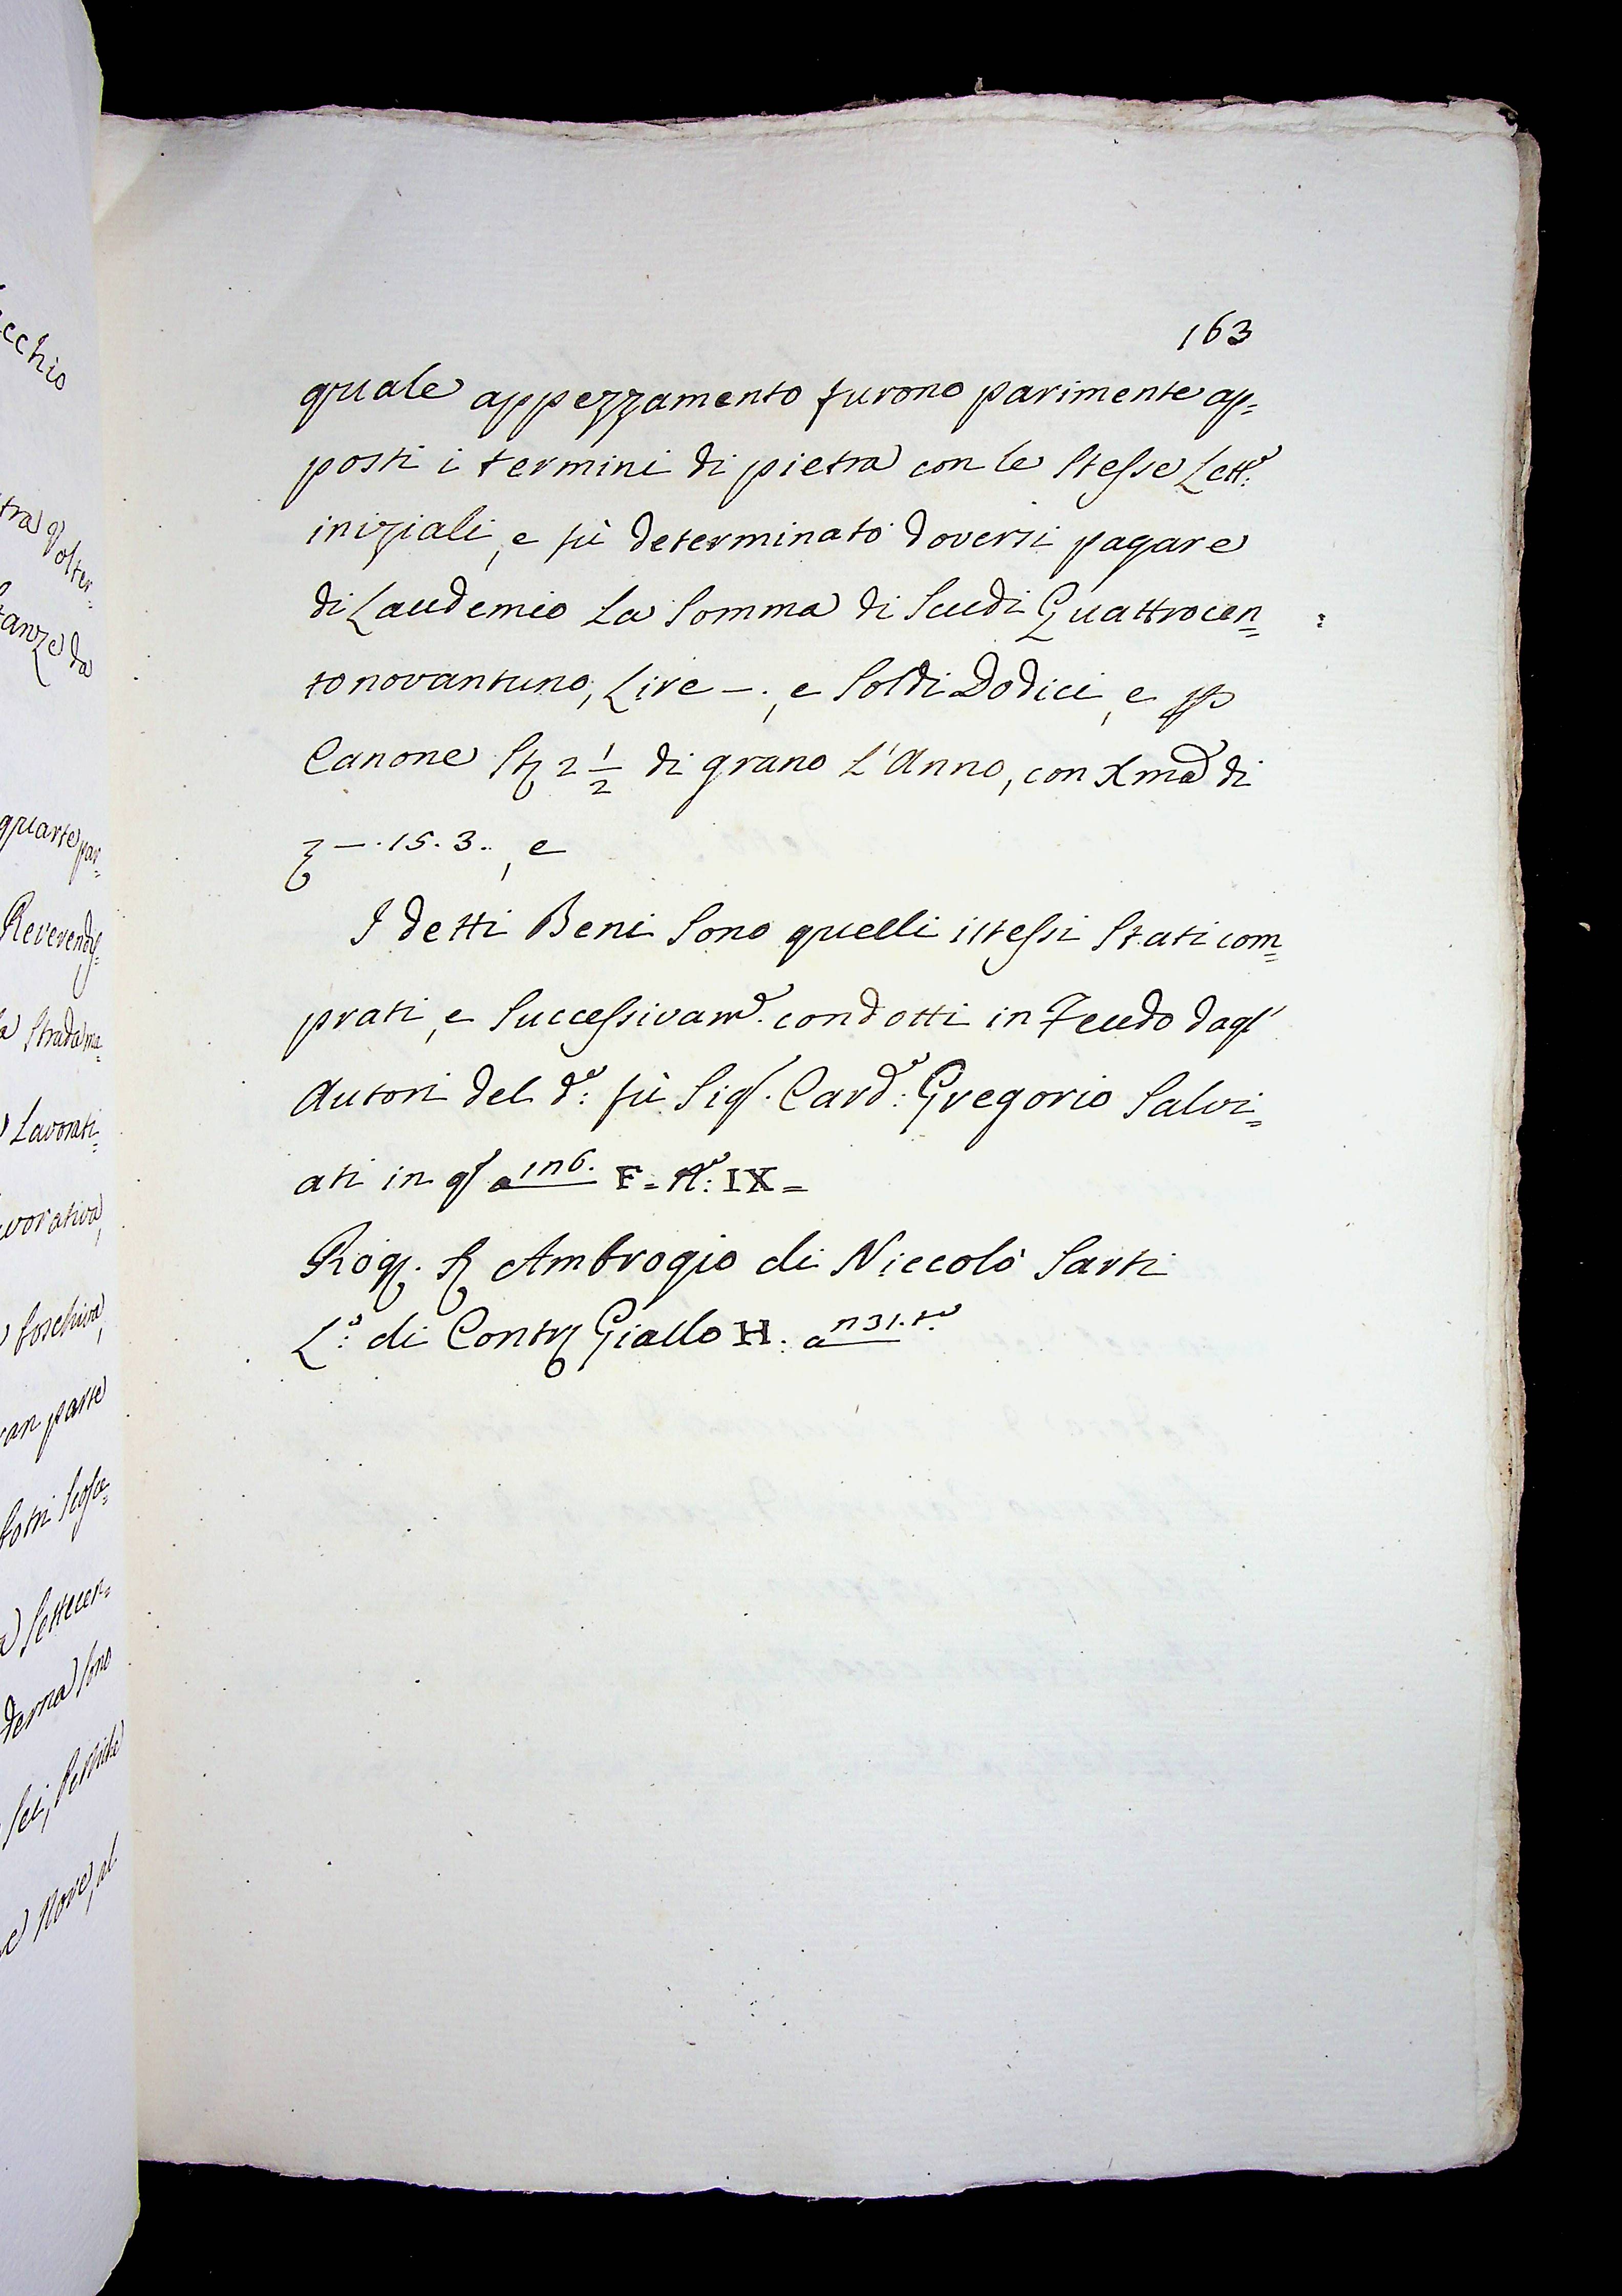 163
quale appezzamento furono parimente ap=
posti i termini di pietra con le stesse Lett.e
iniziali, e fù determinato doversi pagare
di Laudemio La Somma di Scudi Quattrocen=
tonovantuno, Lire —., e Soldi Dodici, e p
Canone St 2 1/2 di grano L'Anno, con Xma di
— .15.3., e
I detti Beni Sono quelli istessi Stati com=
prati, e Successivam.e condotti in Feudo dagl'
Autori del d.o fù Sig. Card.e Gregorio Salvi=
ati in q a 116. F. N.o IX =
Rog. S Ambrogio di Niccolò Sarti
L.o di Contr Giallo H. a 131. t.o
ecchio
tra Volter=
tanze da
quarte par=
Reverendis=
a Strada ma=
Lavorati=
vorativa,
boschiva,
an parte
botri Scosce=
Settecen=
derna Sono
Sei, Pertiche
e Nove, al